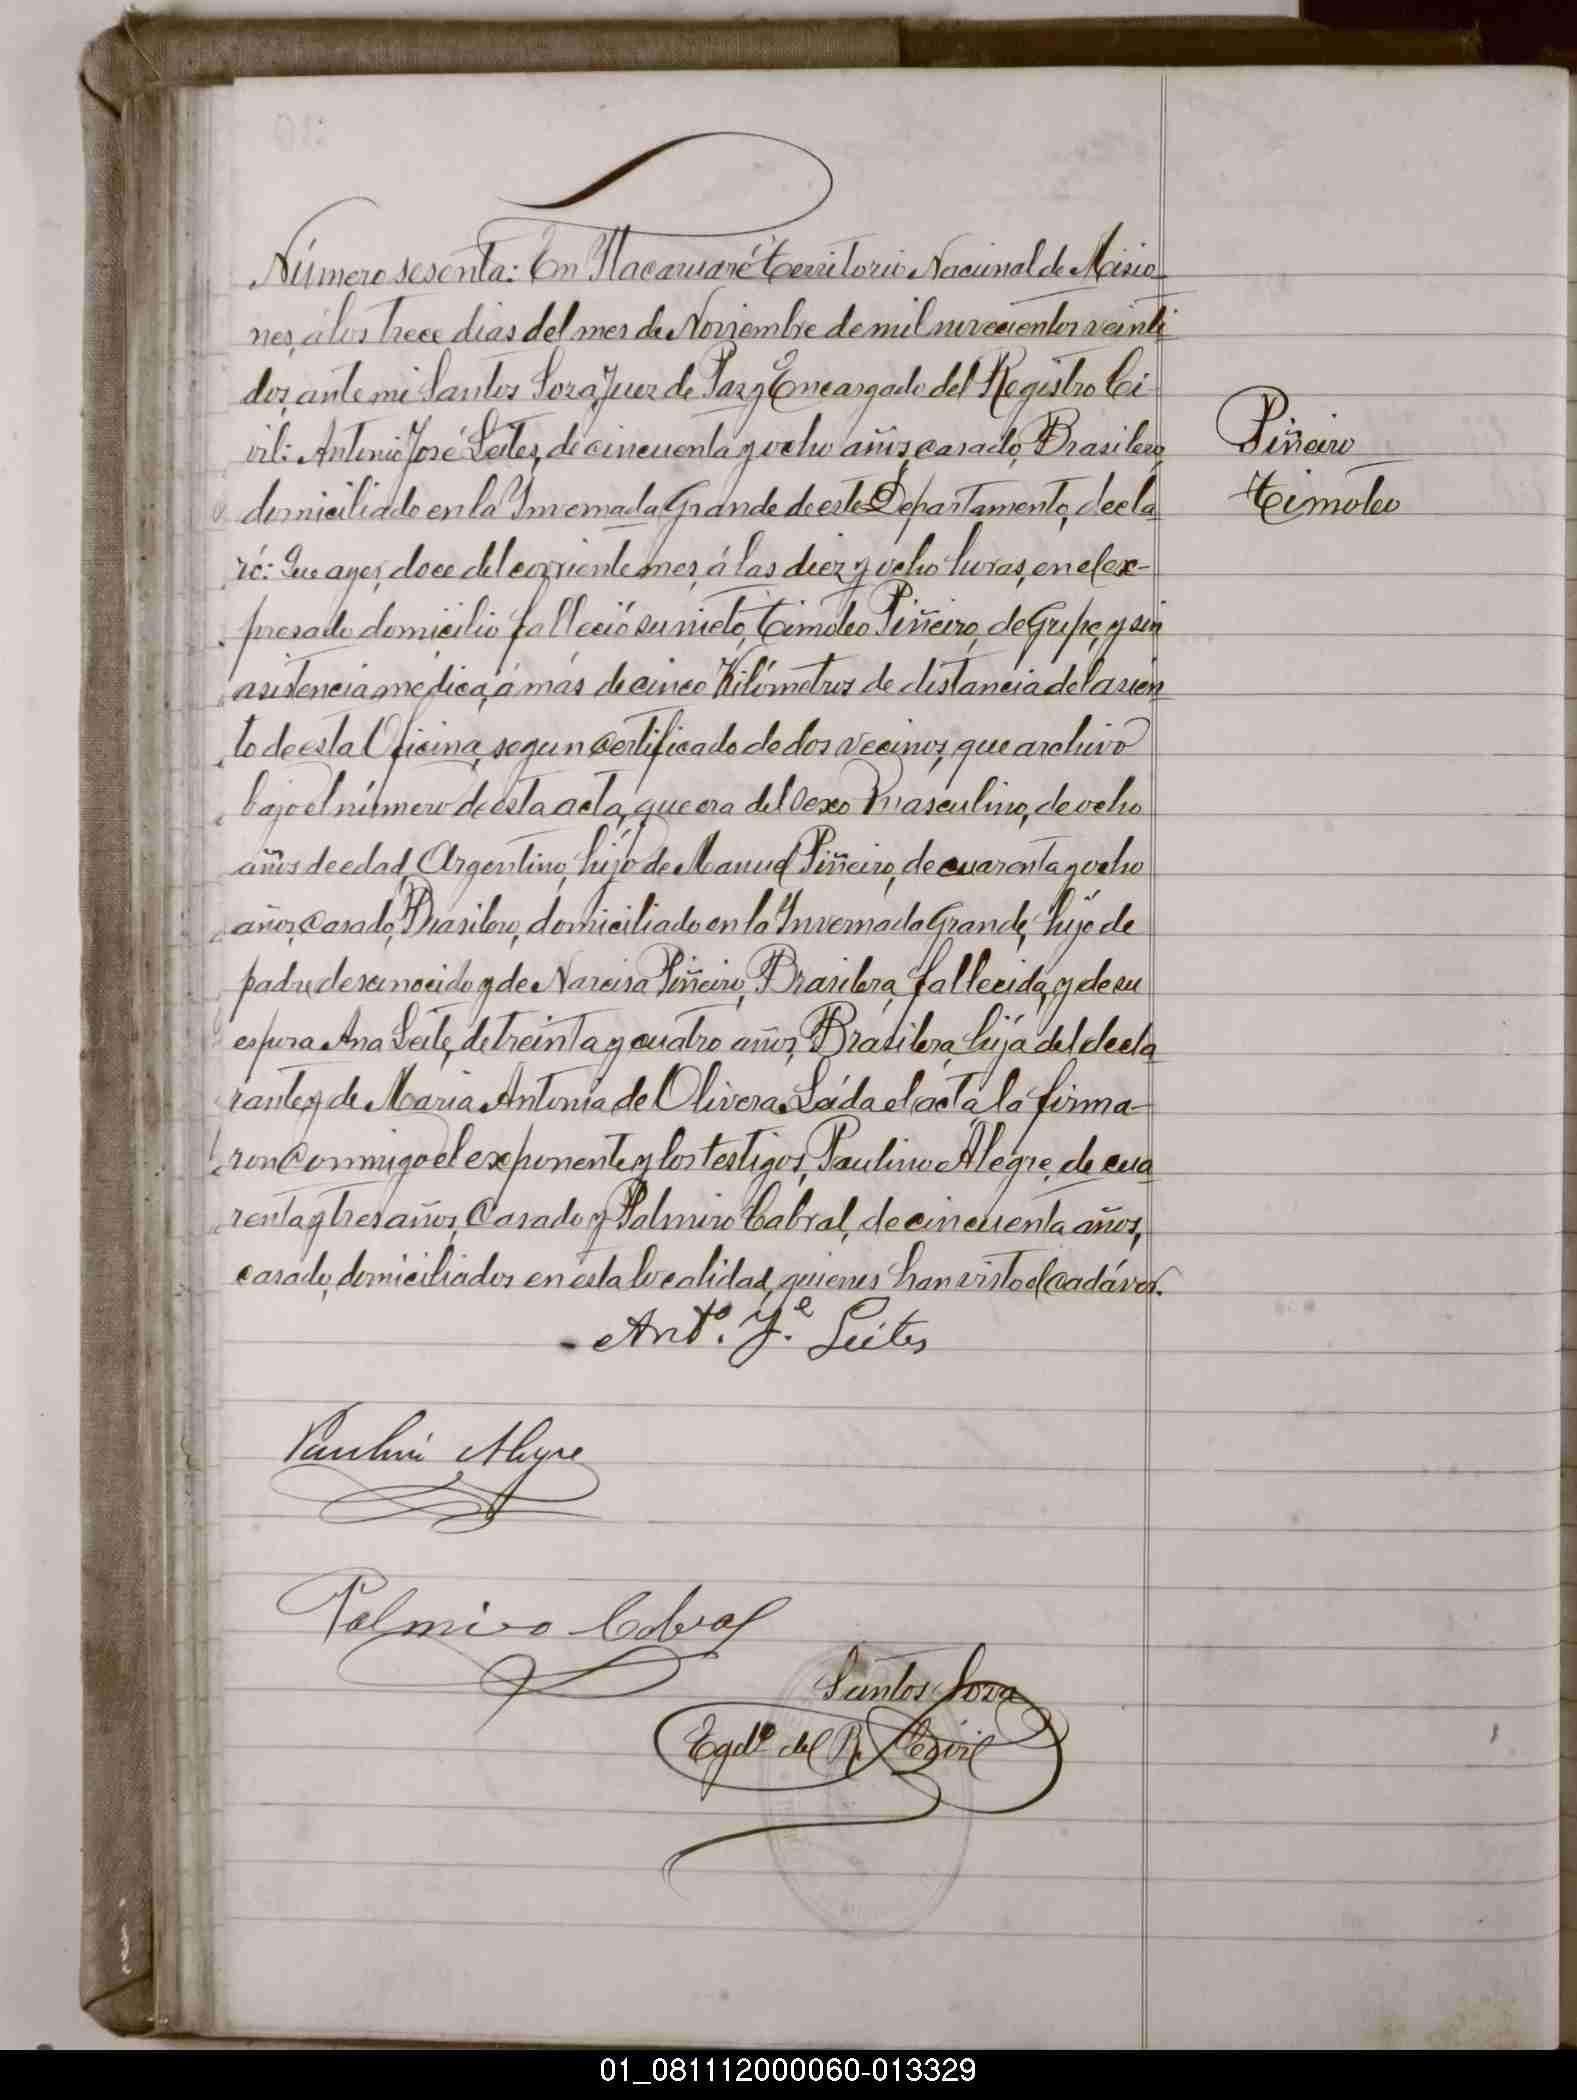 Número sesenta: En Itacaruaré Territorio Nacional de Misio-
nes, á los trece dias del mes de Noviembre de mil novecientos veinti
dos, ante mi Santos Soza, Juez de Paz y Encargado del Registro Ci-
vil: Antonio José Leites, de cincuenta y ocho años, casado, Brasilero,
domiciliado en la Invernada Grande de este Departamento, decla
ró: Que ayer, doce del corriente mes, á las diez y ocho horas, en el ex-
presado domicilio falleció su nieto, Timoteo Piñeiro, de Gripe, y sin
asistencia médica, á más de cinco Kilómetros de distancia del asien
to de esta Oficina, segun certificado de dos vecinos, que archivo
bajo el número de esta acta, que era del sexo masculino, de ocho
años de edad, Argentino, hijo de Manuel Piñeiro, de cuarenta y ocho
años, casado, Brasilero, domiciliado en la Invernada Grande, hijo de
padre desconocido y de Narcisa Piñeiro, Brasilera, fallecida, y de su
esposa Ana Leite, de treinta y cuatro años, Brasilera, hija del decla
rante y de Maria Antonia de Olivera. Leída el acta, la firma-
ron conmigo el exponente y los testigos, Paulino Alegre, de cua
renta y tres años, casado y Palmiro Cabral, de cincuenta años,
casado, domiciliados en esta localidad, quienes han visto el cadáver.
Piñeiro
Timoteo
Anto. Je. Leites
Paulino Alegre
Palmiro Cabral
Santos Soza
Egdo del R. Civil
01_081112000060-013329